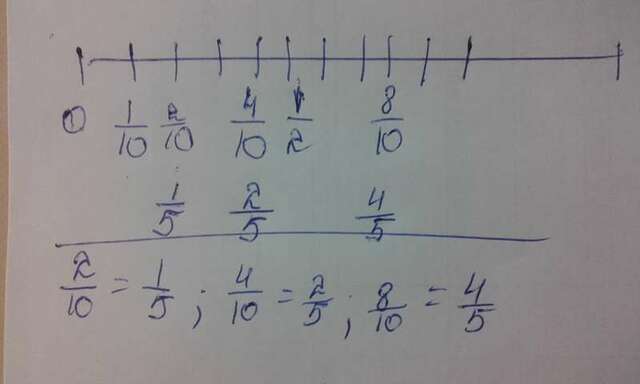 0 1/10 2/10 4/10 1/2 8/10
1/5 2/5 4/5
2/10 = 1/5 ; 4/10 = 2/5 ; 8/10 = 4/5